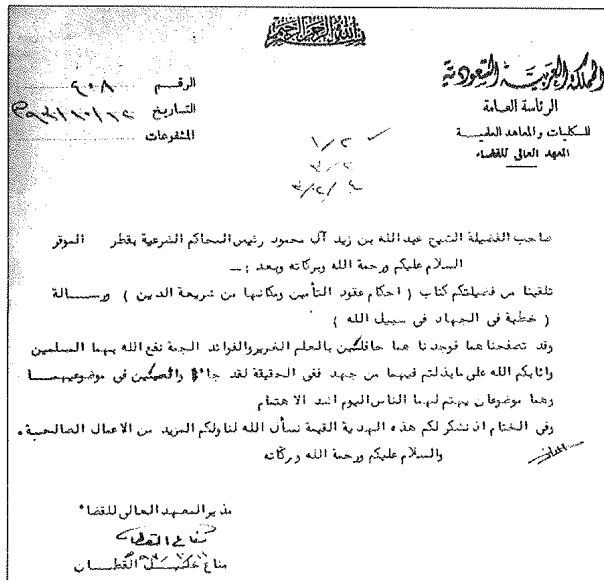 بسم الله الرحمن الرحيم
المملكة العربية السعودية
الرئاسة العامة
للكليات والمعاهد العلمية
المعهد العالي للقضاء
الرقم ٤٠٨
التاريخ
المشفوعات
١/٢
٣/٢
٤/٣٠٢
صاحب الفضيلة الشيخ عبد الله بن زيد آل محمود رئيس المحاكم الشرعية بقطر الموقر
السلام عليكم ورحمة الله وبركاته وبعد : ـ
تلقينا من فضيلتكم كتاب ( احكام عقود التأمين ومكانها من شريعة الدين ) ورسالة
( خطبة في الجهاد في سبيل الله )
وقد تصفحناهما فوجدناهما حافلتين بالعلم الغزير والفوائد الجمة نفع الله بهما المسلمين
واثابكم الله على ما بذلتم فيهما من جهد ففي الحقيقة لقد جائا في موضوعيهما
وهما موضوعان يهتم لهما الناس اليوم اشد الاهتمام
وفي الختام اذ نشكر لكم هذه الهدية القيمة نسأل الله لنا ولكم المزيد من الاعمال الصالحة .
والسلام عليكم ورحمة الله وبركاته
مدير المعهد العالي للقضاء
مناع القطان
مناع خليل القطان